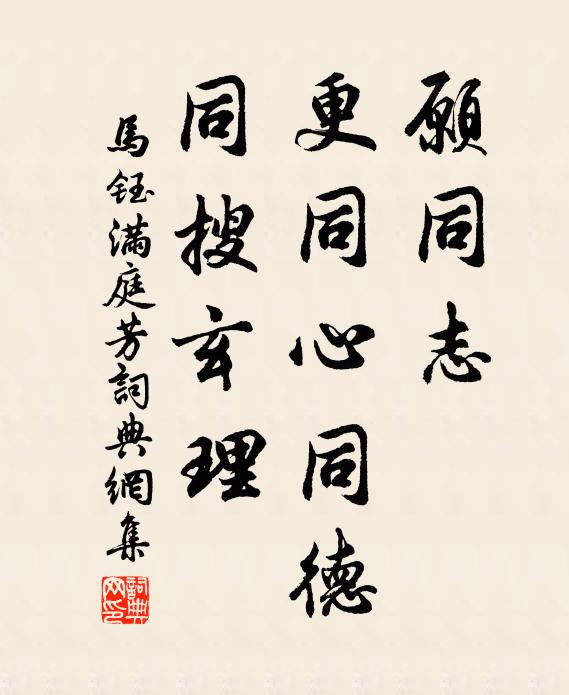 願同志
更同心同德
同搜玄理
馬鈺滿庭芳詞典網集
詞典網印